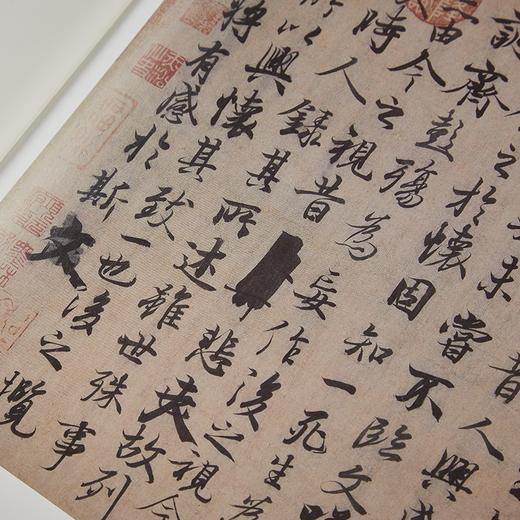 昔人興
未嘗不臨文
之於懷固知一死生為
誕齊彭殤為妄作後之視今
由今之視昔悲夫故列
時人錄其所述雖世殊事
所以興懷其致一也後之攬
將有感於斯文